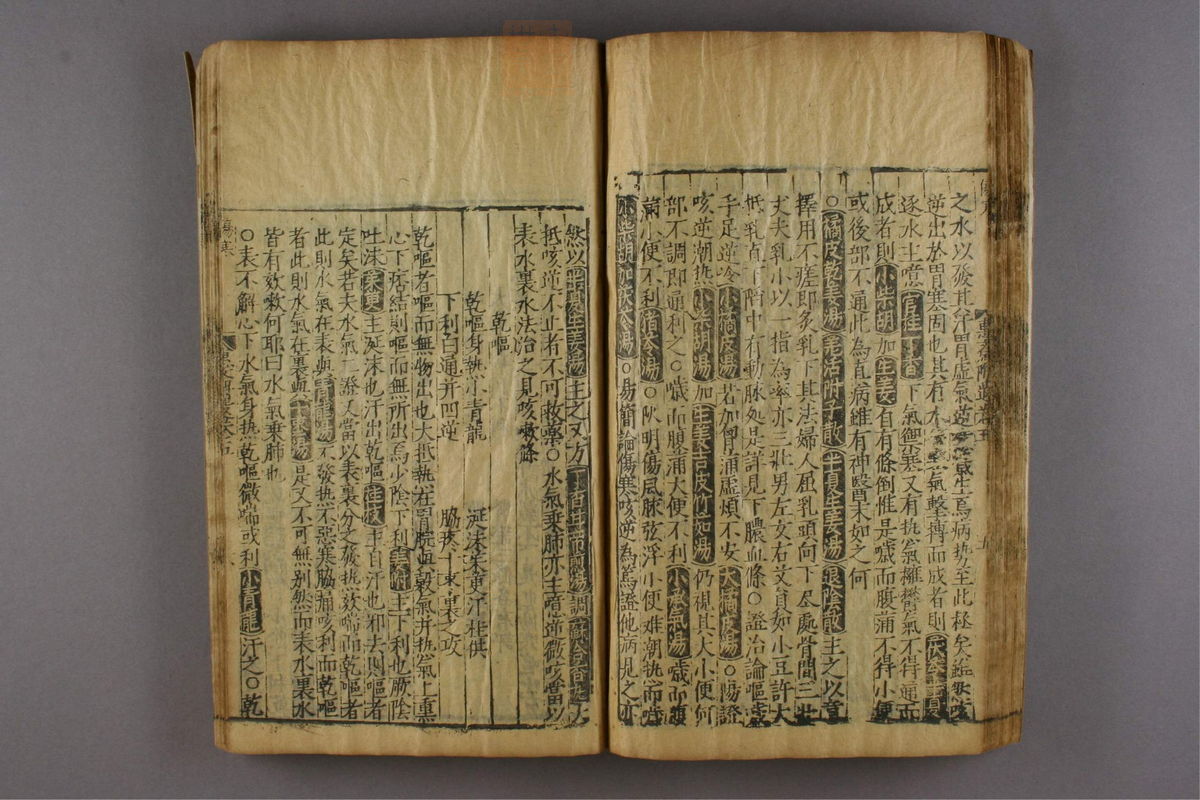 之水以發其汗胃虛氣逆
逆出於胃寒固也其有水氣擊搏而成者則
逐水主噫官桂丁香下氣禦寒又有热氣擁鬱氣不得通而
成者則小柴胡加生姜自有條倒惟是噦而腹滿不得小便
或後部不通此為真病雖有神醫末如之何
○橘皮乾姜湯羌活附子散半夏生姜湯退陰散主之以意
擇用不瘥即炙乳下其法婦人屈乳頭向下尽處骨間三壯
丈夫乳小以一指為率亦三壯男左女右艾貟如小豆許大
抵乳直下陷中有動脉処是詳見下膿血條○證治論嘔
手足逆冷小橘皮湯若加胃涌虛煩不安大橘皮湯○陽證
咳逆潮热小柴胡湯加生姜吉皮竹茹湯仍視其大小便何
部不調即通利之○噦而腹滿大便不利小承氣湯噦而腹
滿小便不利猪苓湯○阦明傷风脉弦浮小便难潮热而
小柴胡加茯苓湯○易簡論傷寒咳逆為篤證他病見之亦
然以半夏生姜湯主之又方
抵咳逆不止者不可救藥○水氣乗肺亦主噫逆微咳當以
表水裏水法治之見咳嗽條
乾嘔
乾嘔身热小青龍
涎沫朱萸汗桂供
下利白通并四逆
脇疼十棗裏之攻
乾嘔者嘔而無物出也大抵热在胃脘與穀氣并热氣上熏
心下痞結則嘔而無所出焉少陰下利姜附主下利也厥陰
吐沫茱萸主涎沫也汗出乾嘔桂枝主自汗也邪去則嘔者
定矣若夫水氣二證又當以表裏分之發热欬喘而乾嘔者
此則水氣在表與青龍湯不發热不惡寒脇痛咳利而乾嘔
者此則水氣在裏與十棗湯是又不可無别然而表水裏水
皆有效嗽何耶曰水氣乗肺也
○表不解心下水氣身热乾嘔微喘或利小青龍汗之○乾